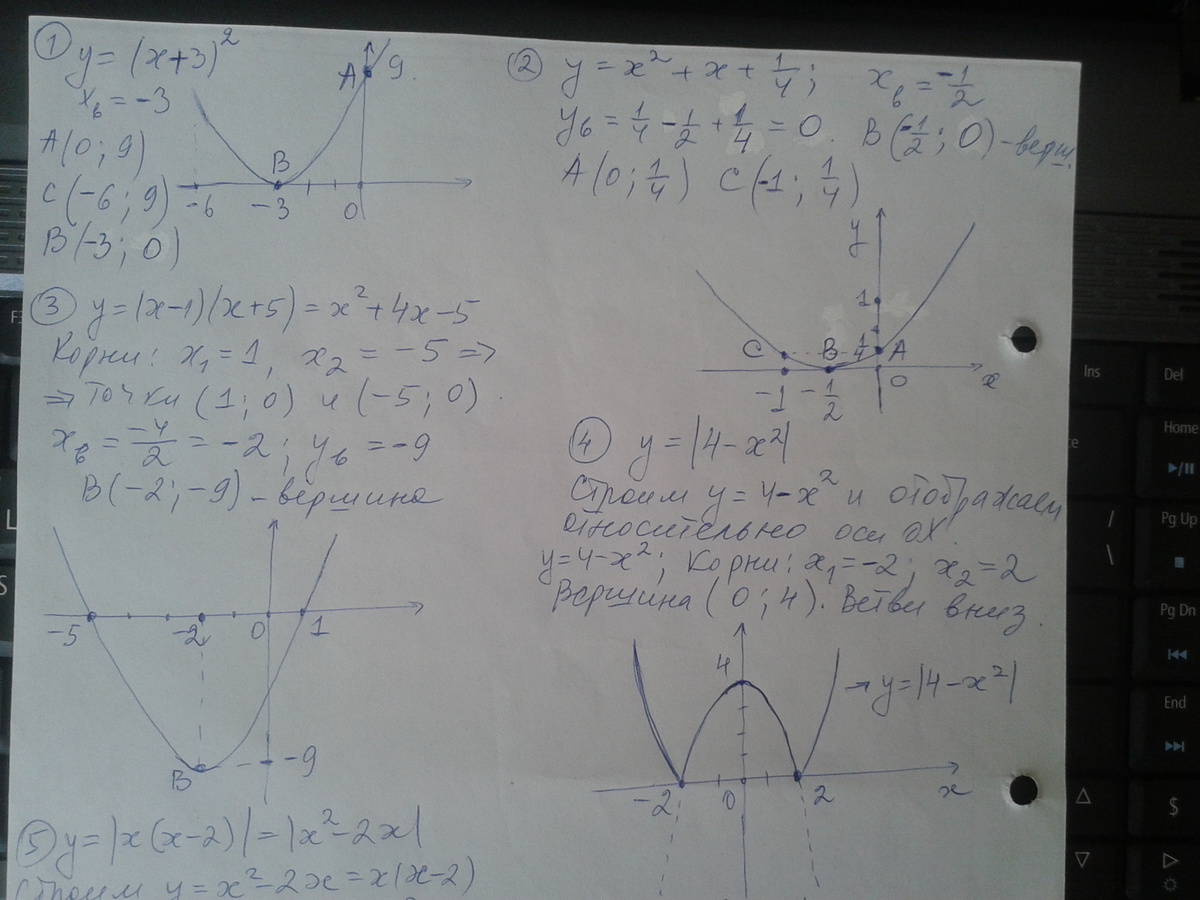 ① y = (x+3)²
xв = -3
A(0; 9)
C(-6; 9)
B(-3; 0)
A 9
B
-6 -3 0
② y = x² + x + 1/4; xв = -1/2
yв = 1/4 - 1/2 + 1/4 = 0. B(-1/2; 0) - верш.
A(0; 1/4) C(-1; 1/4)
y
1
C B 1/4 A
-1 -1/2 0 x
③ y = (x-1)(x+5) = x² + 4x - 5
Корни: x₁ = 1, x₂ = -5 ⇒
⇒ точки (1; 0) и (-5; 0).
xв = -4/2 = -2; yв = -9
B(-2; -9) - вершина
-5 -2 0 1
B -9
④ y = |4 - x²|
Строим y = 4 - x² и отображаем
относительно оси OX.
y = 4 - x²; Корни: x₁ = -2; x₂ = 2
Вершина (0; 4). Ветви вниз.
4 → y = |4 - x²|
-2 0 2 x
⑤ y = |x(x-2)| = |x² - 2x|
Строим y = x² - 2x = x(x-2)
Ins
Del
Home
Pg Up
Pg Dn
End
F3
L
S
/
\
$